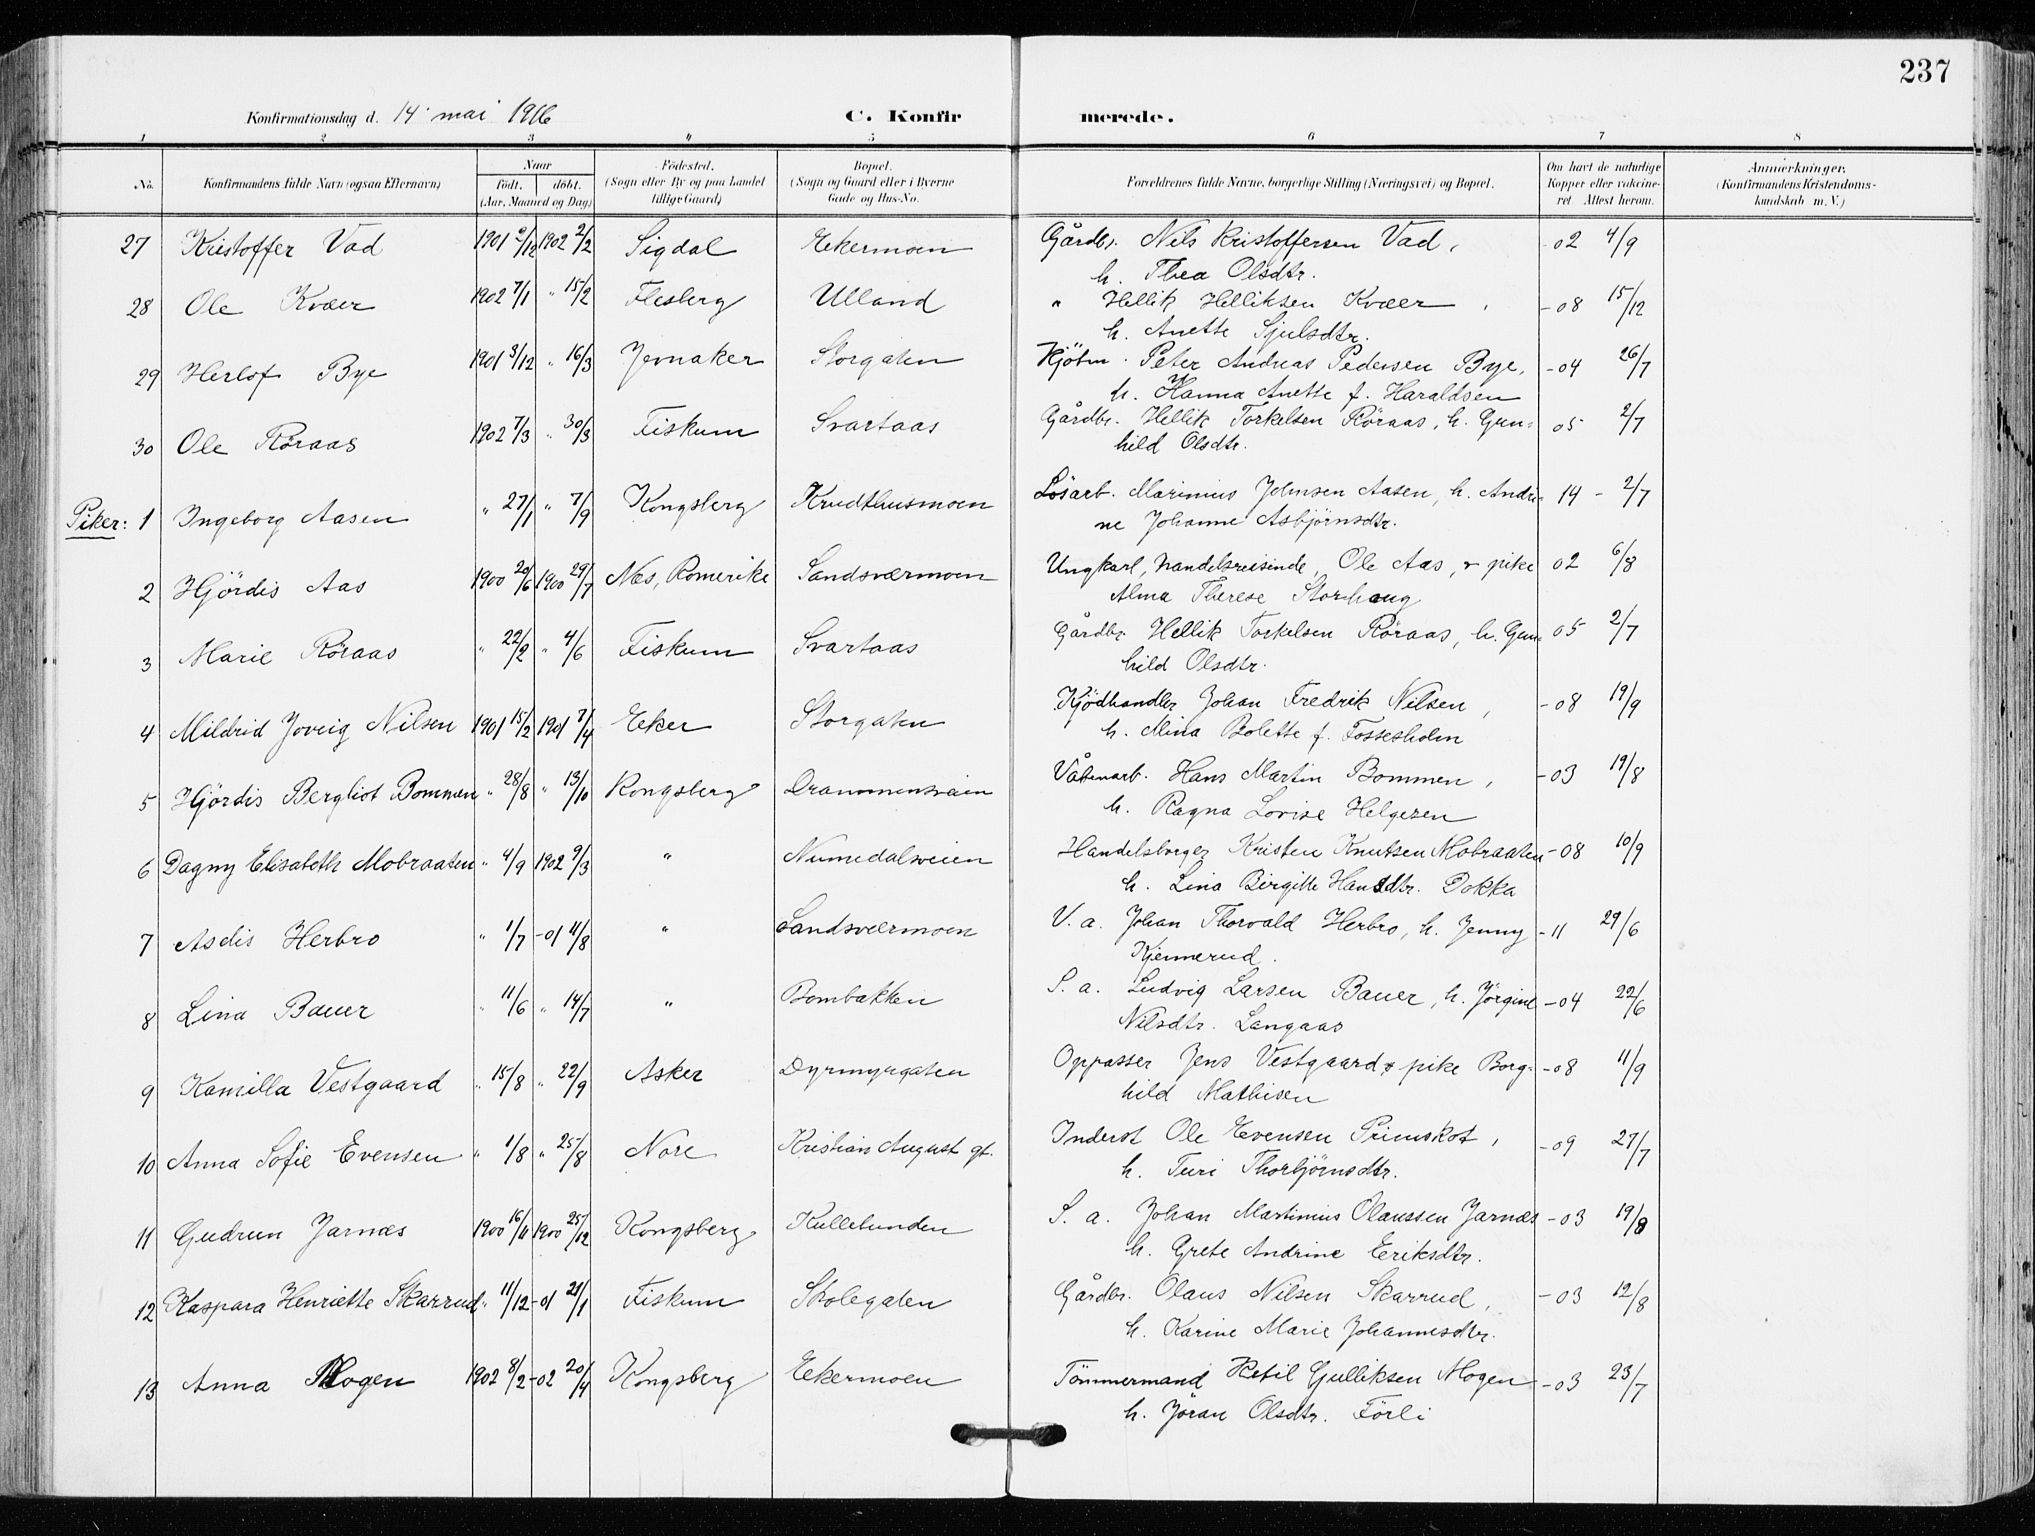 237
Konfirmationsdag d. 14 mai 1916 C. Konfirmerede.
1 2 3 4 5 6 7 8
No. Konfirmandens fulde Navn (ogsaa Efternavn) Naar födt. döbt. (Aar, Maaned og Dag) Födested. (Sogn eller By og paa Landet tillige Gaard) Bopæl. (Sogn og Gaard eller i Byerne Gade og Hus-No. Forældrenes fulde Navne, borgerlige Stilling (Næringsvei) og Bopæl. Om havt de naturlige Kopper eller vaccineret. Attest herom. Anmærkninger. (Konfirmandens Kristendomskundskab m. V.)
27 Kristoffer Vad 1901 /12 1902 2/2 Sigdal Ekermoen Gårdbr. Nils Kristoffersen Vad, -02 4/9
h. Thea Olsdtr.
28 Ole Kvær 1902 7/1 " 15/2 Flesberg Ulland " Hellik Helliksen Kvær, -08 15/12
h. Anette Sjulsdtr.
29 Herlof Bye 1901 3/12 " 16/3 Jevnaker Storgaten Kjöbm. Peter Andreas Pedersen Bye, -04 26/7
h. Hanna Anette f. Haraldsen
30 Ole Röraas 1902 7/3 " 30/3 Fiskum Svartaas Gårdbr. Hellik Torkelsen Röraas, h. Gun- 05 2/7
hild Olsdtr.
Piker: 1 Ingeborg Aasen " 27/1 " 7/9 Kongsberg Krudthusmoen Lösarb. Marinius Johnsen Aasen, h. Andri- 14 - 2/7
ne Johanne Asbjörnsdtr.
2 Hjördis Aas 1900 20/6 1900 29/7 Næs, Romerike Sandsværmoen Ungkarl, handelsreisende, Ole Aas, & pike 02 6/8
Alma Therese Storhaug
3 Marie Röraas " 22/2 " 4/6 Fiskum Svartaas Gårdbr. Hellik Torkelsen Röraas, h. Gun- 05 2/7
hild Olsdtr.
4 Mildrid Jovig Nilsen 1901 15/2 1901 7/4 Eker Storgaten Kjödhandler Johan Fredrik Nilsen, -08 19/9
h. Mina Bolette f. Fossesholm
5 Hjördis Bergliot Bommen " 28/8 " 13/10 Kongsberg Drammensveien Våbenarb. Hans Martin Bommen, -03 19/8
h. Ragna Lovise Helgesen
6 Dagny Elisabeth Mobraaten " 4/9 1902 9/3 " Numedalsveien Handelsborger Kristen Knutsen Mobraaten -08 10/9
h. Lina Birgitte Hansdtr. Dokka
7 Asdis Herbro " 1/7 -01 11/8 " Sandsværmoen V. a. Johan Thorvald Herbro, h. Jenny -11 29/6
Kjennerud.
8 Lina Bauer " 11/6 " 14/7 " Bombakken S. a. Ludvig Larsen Bauer, h. Jörgine -04 22/6
Nilsdtr. Langaas
9 Kamilla Vestgaard " 15/8 " 22/9 Asker Dyrmyrgaten Oppasser Jens Vestgaard & pike Borg- -08 11/9
hild Mathisen
10 Anna Sofie Evensen " 1/8 " 25/8 Nore Kristian August gt. Inderst Ole Evensen Primskot, -09 27/7
h. Turi Thorbjörnsdtr.
11 Gudrun Jarnæs 1900 16/11 1900 25/12 Kongsberg Kullelunden S. a. Johan Martinius Olaussen Jarnæs -03 19/8
h. Grete Andrine Eriksdtr.
12 Kaspara Henriette Skarrud " 11/12 -01 21/1 Fiskum Skolegaten Gårdbr. Olaus Nilsen Skarrud, -03 12/8
h. Karine Marie Johannesdtr.
13 Anna Mogen 1902 8/2 -02 20/4 Kongsberg Ekermoen Tömmermand Ketil Gulliksen Mogen -03 23/7
h. Jöran Olsdtr. Förli